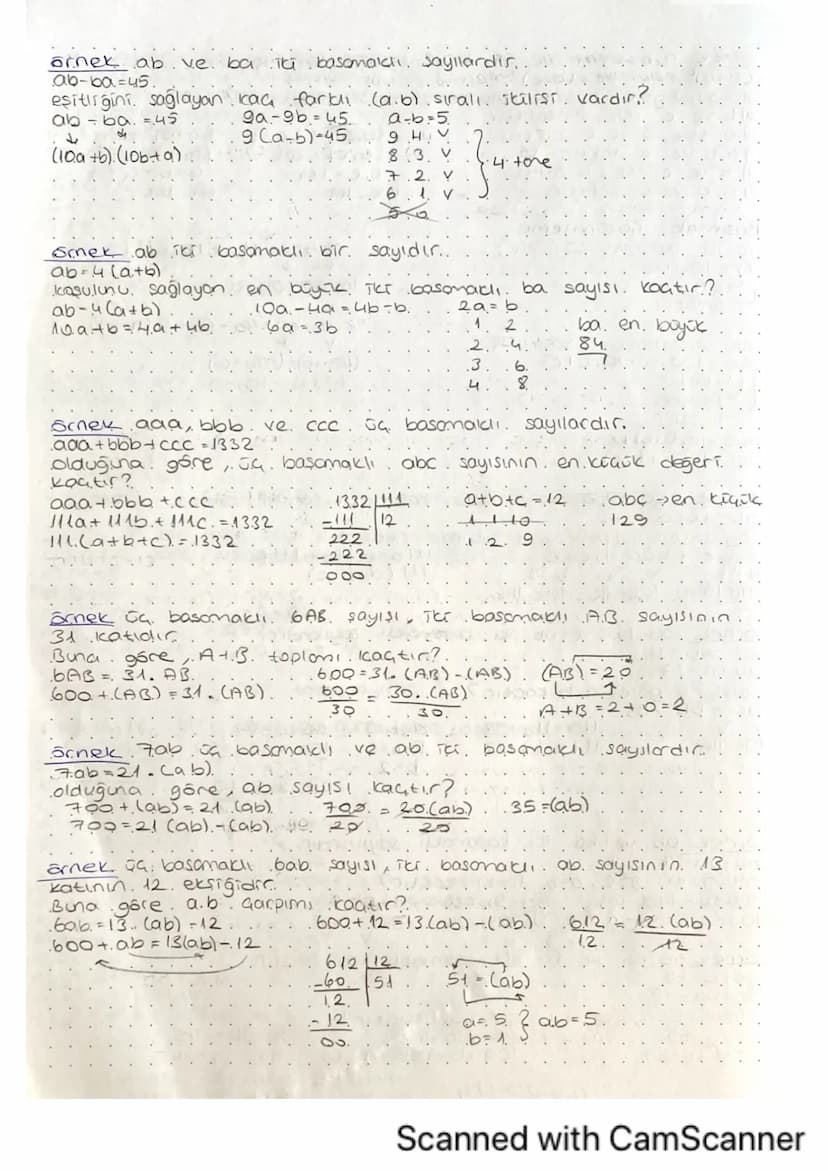 örnek ab ve ba iki basamaklı sayılardır.
ab-ba=45
eşitliğini sağlayan kaç farklı (a.b) sıralı ikilisi vardır?
ab - ba = 45 9a-9b=45 a-b=5
9(a-b)=45 9 4 v
(10a+b).(10b+a) 8 3 v
7 2 v 4 tane
6 1 v
5 0
örnek ab iki basamaklı bir sayıdır.
ab=4(a+b)
koşulunu sağlayan en büyük iki basamaklı ba sayısı kaçtır?
ab-4(a+b) 10a-4a=4b-b 2a=b
10a+b=4a+4b 6a=3b 1 2 ba en büyük
2 4 84
3 6
4 8
örnek aaa, bbb ve ccc üç basamaklı sayılardır.
aaa+bbb+ccc=1332
olduğuna göre, üç basamaklı abc sayısının en küçük değeri
kaçtır?
aaa+bbb+ccc 1332 111 a+b+c=12 abc→en küçük
111a+111b+111c=1332 -111 12 1 1 10 129
111.(a+b+c)=1332 222 1 2 9
-222
000
örnek üç basamaklı 6AB sayısı, iki basamaklı AB sayısının
31 katıdır.
Buna göre, A+B toplamı kaçtır?
6AB=31.AB 600=31.(AB)-(AB) (AB)=20
600+(AB)=31.(AB) 600/30 = 30.(AB)/30 A+B=2+0=2
örnek 7ab üç basamaklı ve ab iki basamaklı sayılardır.
7ab=21.(ab)
olduğuna göre, ab sayısı kaçtır?
700+(ab)=21(ab) 700/20 = 20(ab)/20 35=(ab)
700=21(ab)-(ab)
örnek üç basamaklı 6ab sayısı, iki basamaklı ab sayısının 13
katının 12 eksiğidir.
Buna göre a.b çarpımı kaçtır?
6ab=13.(ab)-12 600+12=13.(ab)-(ab) 612/12 = 12.(ab)/12
600+ab=13(ab)-12
612 12
-60 51 51=(ab)
12
-12 a=5 ab=5
00 b=1
Scanned with CamScanner